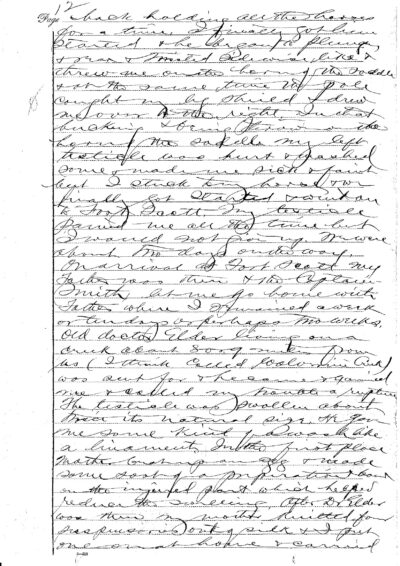 Page 12
back holding all the horses
for a time I finally got him
started & he began to plunge
& rear & threw me on the horn of the saddle
& at the same time the pole
caught in my shield & drew
me over to the right. In that
bucking & being thrown on the
horn of the saddle my left
testicle was hurt & mashed
some & made me sick & faint
but I stuck to my horse & we
finally got started & went on
to Fort Scott. My testicle
pained me all the time but
I would not give up. We were
about two days on the way.
On arrival at Fort Scott my
Father was there & the Captain
Smith let me go home with
Father where I remained a week
or ten days or perhaps two weeks.
Old doctor Elder living on a
creek about 8 or 9 miles from
us (I think called Wolverine Creek)
was sent for & he came & examined
me & called my trouble a rupture
The testicle was swollen about
twice its natural size. He gave
me some kind of a wash like
a linament. In the first place
Mother & made
some sort of a preparation & bound
on the injured part which helped
reduce the swelling. After Dr. Elder
was there my mother knitted four
suspensories out of silk & I put
one on at home & carried